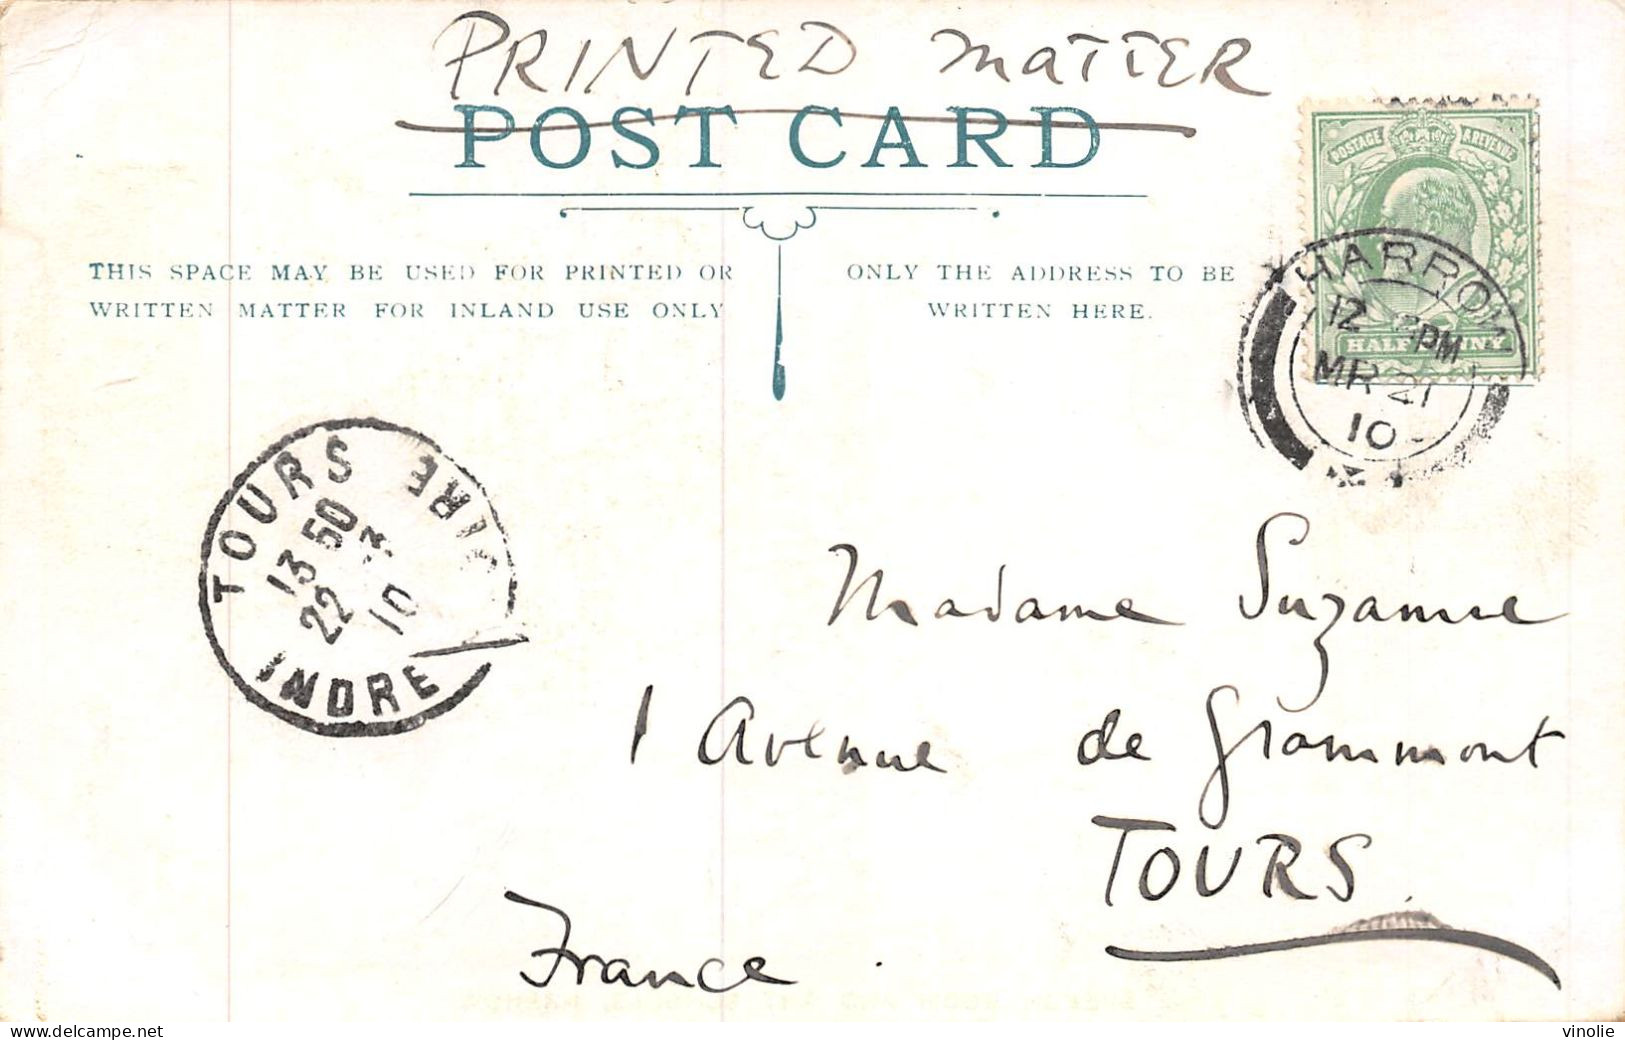 PRINTED MATTER
POST CARD
POSTAGE & REVENUE
THIS SPACE MAY BE USED FOR PRINTED OR
WRITTEN MATTER FOR INLAND USE ONLY
ONLY THE ADDRESS TO BE
WRITTEN HERE.
HARROW
12 PM
MR 21
10
HALFPENNY
TOURS
13 50
22 3
10
INDRE
Madame Suzanne
1 Avenue de Grammont
TOURS.
France.
delcampe.net
vinolie